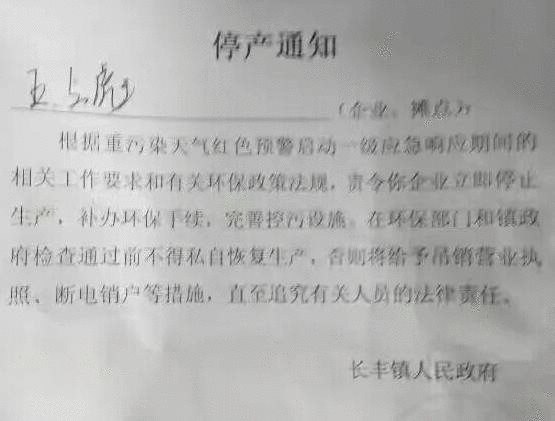 停产通知
王
(企业、摊点):
根据重污染天气红色预警启动一级应急响应期间的
相关工作要求和有关环保政策法规，责令你企业立即停止
生产，补办环保手续，完善控污设施。在环保部门和镇政
府检查通过前不得私自恢复生产，否则将给予吊销营业执
照、断电销户等措施，直至追究有关人员的法律责任。
长丰镇人民政府